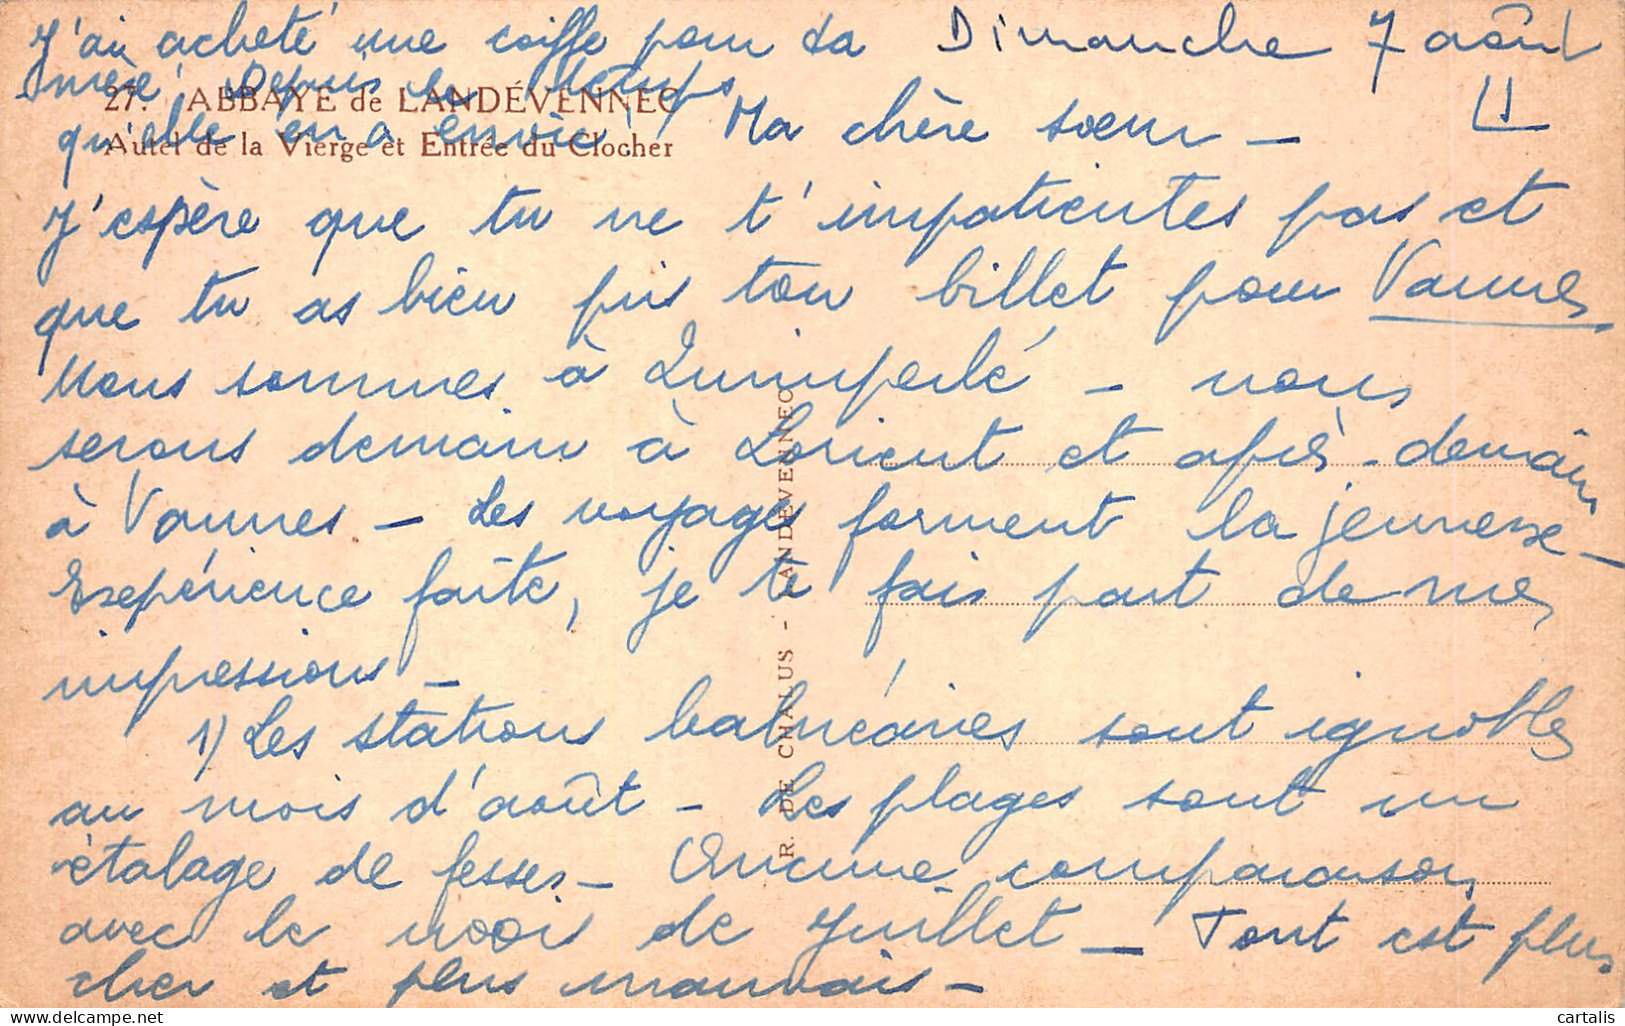 J'ai acheté une coiffe pour sa
mère. Depuis le temps
qu'elle en a envie !
Dimanche 7 août
27. ABBAYE de LANDÉVENNEC
Autel de la Vierge et Entrée du Clocher
Ma chère sœur -
J'espère que tu ne t'impatientes pas et
que tu as bien pris ton billet pour Vannes
Nous sommes à Quimperlé - nous
serons demain à Lorient et après-demain
à Vannes - Les voyages forment la jeunesse -
Expérience faite, je te fais part de mes
impressions -
1) Les stations balnéaires sont ignobles
au mois d'août - Les plages sont un
étalage de fesses - Aucune comparaison
avec le mois de Juillet - Tout est plus
cher et plus mauvais -
R. DE CHALUS - LANDÉVENNEC
cartalis
delcampe.net